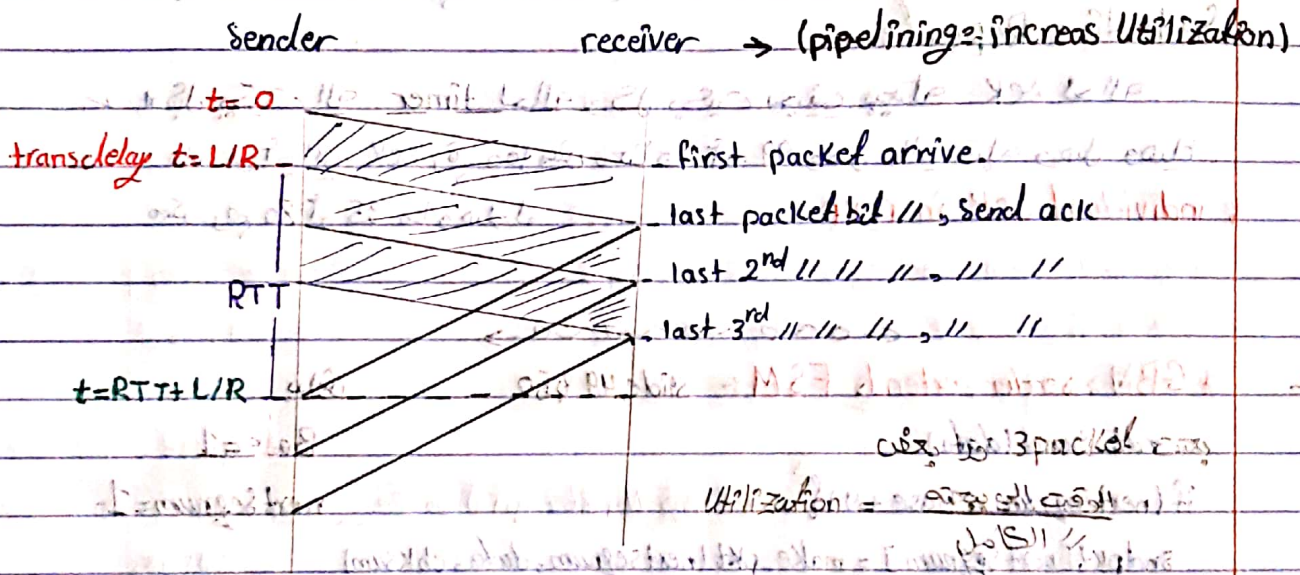 sender receiver → (pipelining = increas Utilization)
t = 0
transdelay t = L/R
first packet arrive.
last packet bit 〃, send ack
last 2nd 〃 〃 〃, 〃 〃
RTT
last 3rd 〃 〃 〃, 〃 〃
t = RTT + L/R
3 packet
Utilization = الوقت الي
〃 الكامل